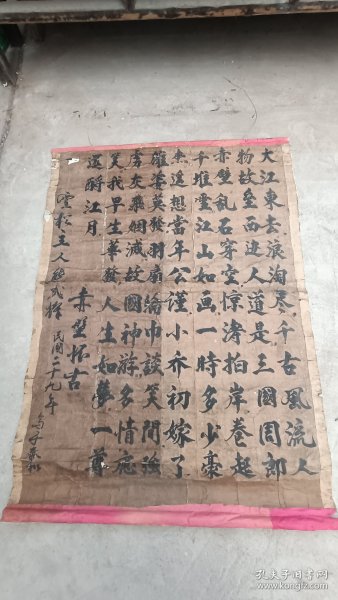 大江東去浪淘尽千古風流人
物故壘西边人道是三國周郎
赤壁乱石穿空惊涛拍岸卷起
千堆雪江山如画一時多少豪
杰遥想當年公谨小乔初嫁了
雄姿英發羽扇綸巾談笑間強
虜灰飛烟滅故國神游多情應
笑我早生華發人生如夢一尊
還酹江月
赤壁怀古
主人
民國二十九年
孔夫子旧书网
www.kongfz.com